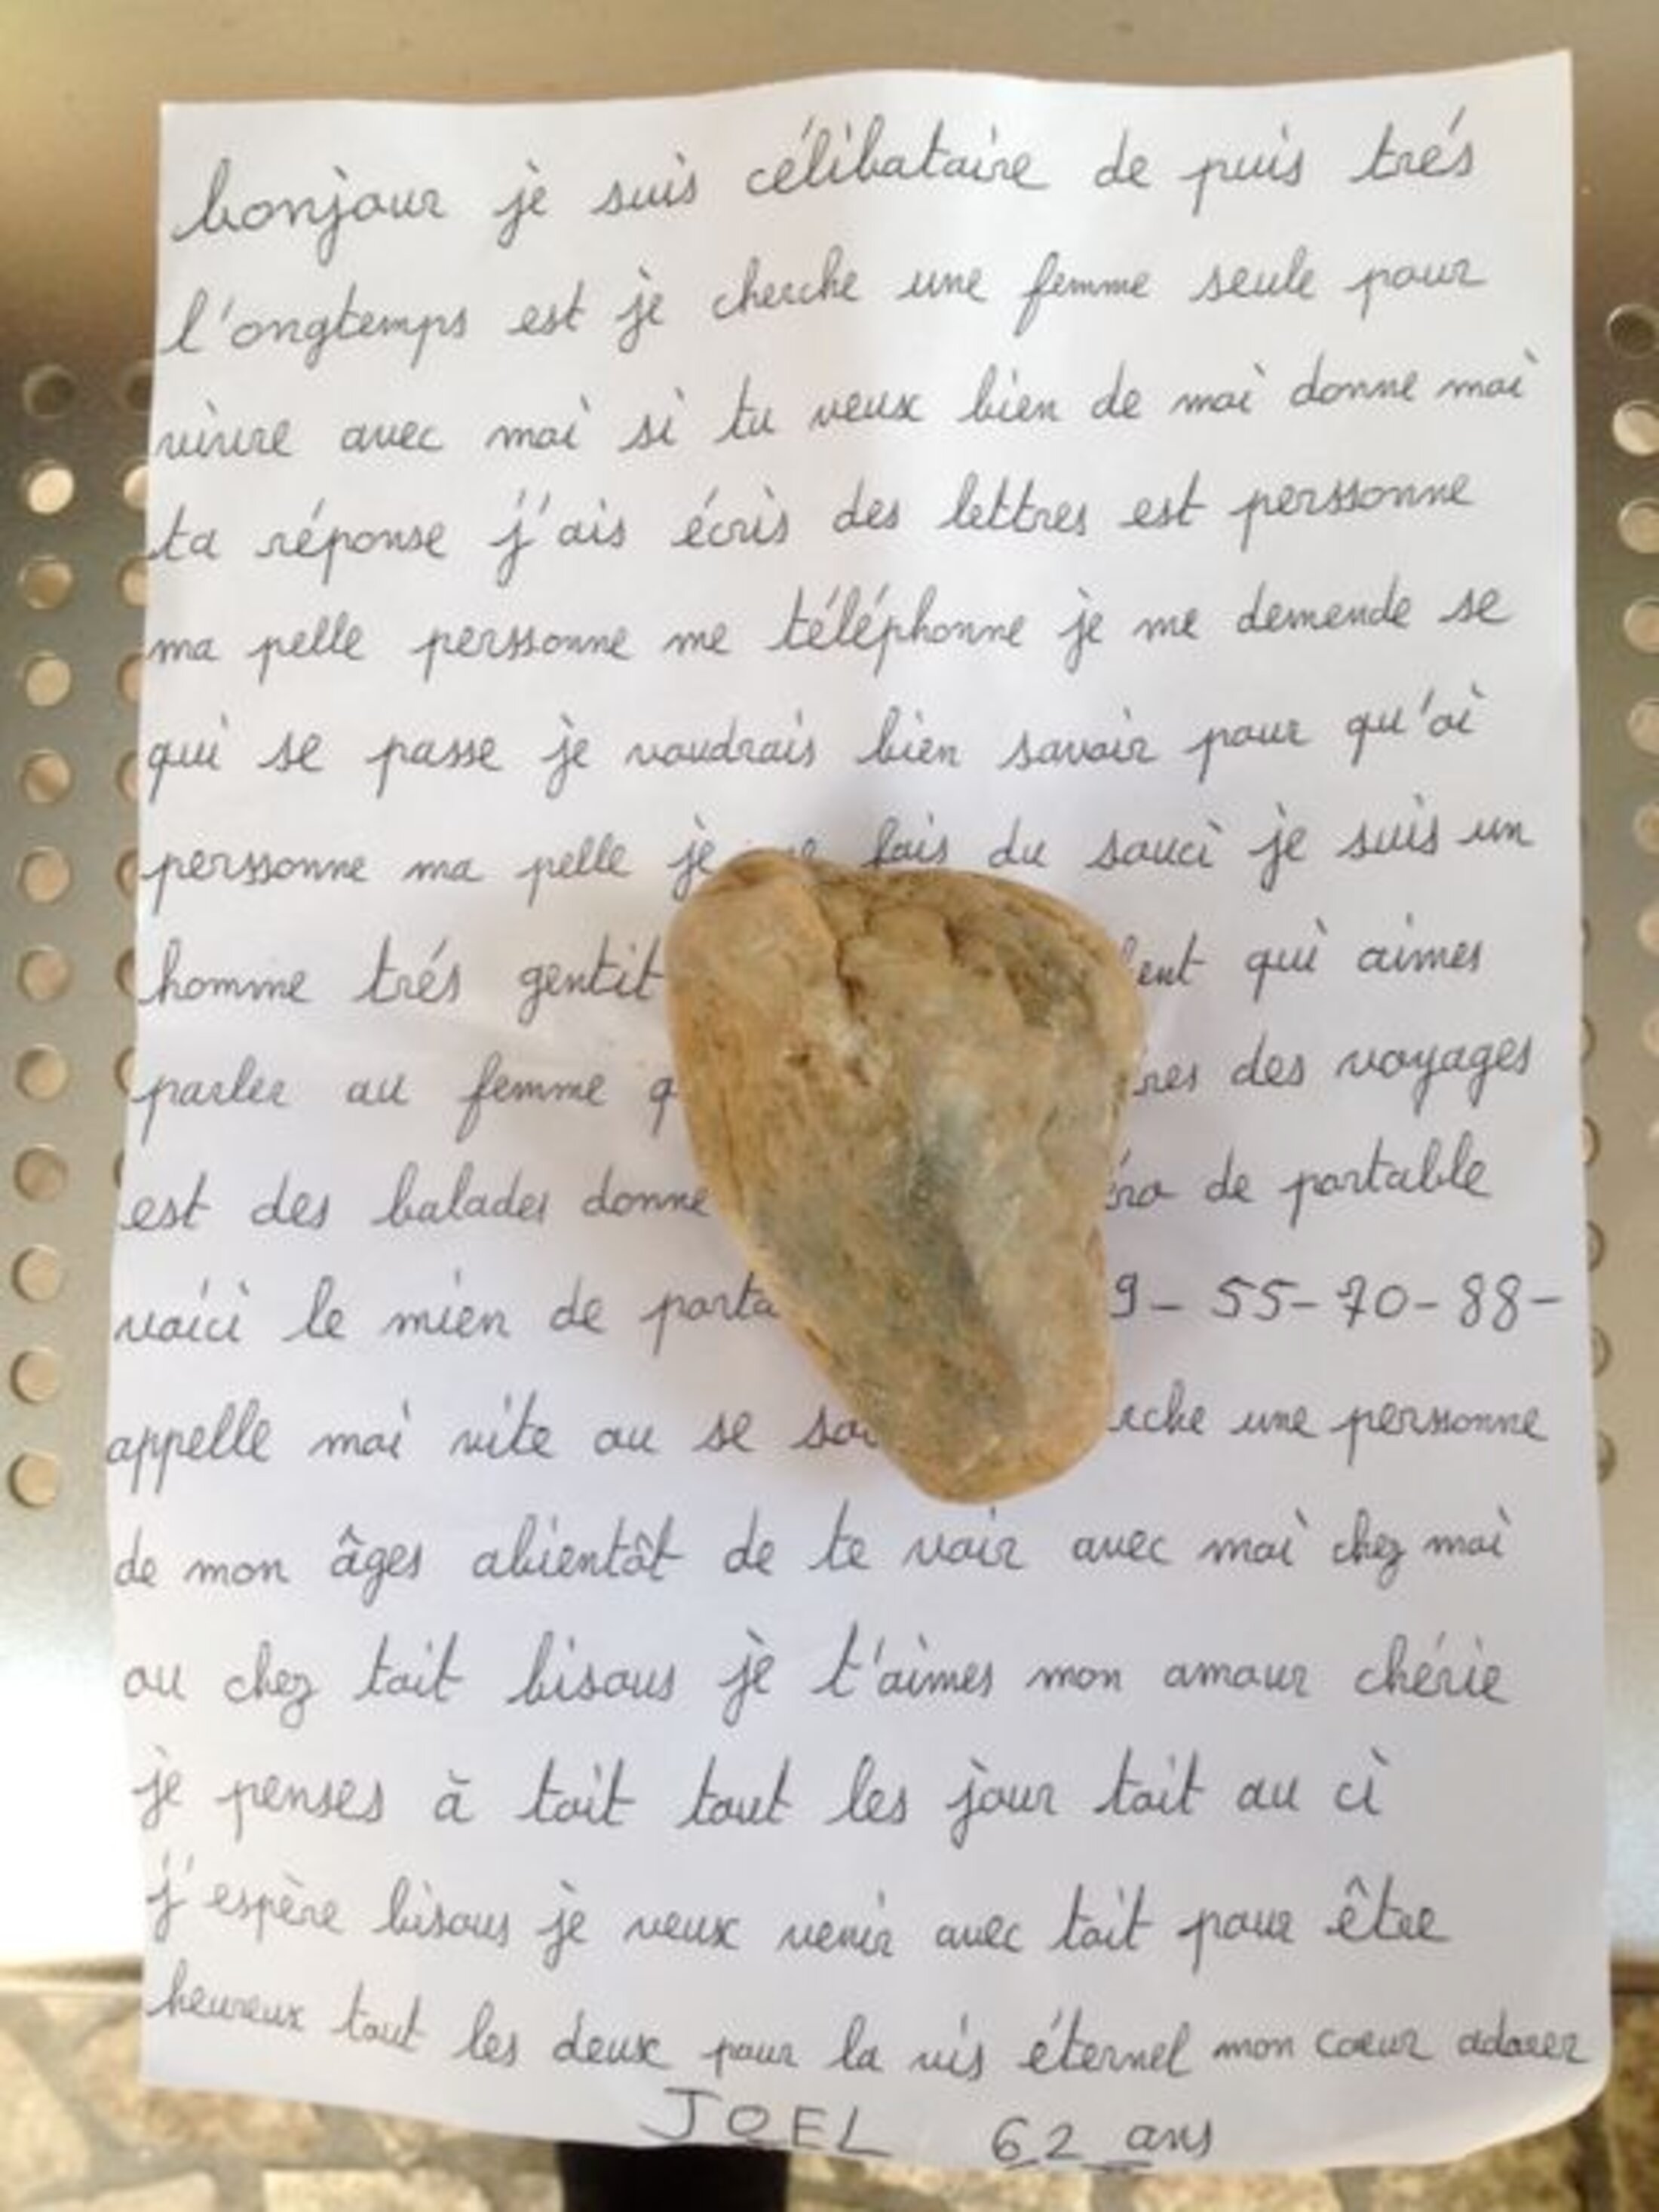 bonjour je suis célibataire de puis trés
l'ongtemps est je cherche une femme seule pour
vivre avec moi si tu veux bien de moi donne moi
ta réponse j'ais écris des lettres est perssonne
ma pelle perssonne me téléphonne je me demende se
qui se passe je voudrais bien savoir pour qu'oi
perssonne ma pelle je fais du souci je suis un
homme trés gentit qui aimes
parler au femme des voyages
est des balades donne de portable
voici le mien de 9-55-70-88-
appelle moi vite ou se une personne
de mon âges abientôt de te voir avec moi chez moi
ou chez toit bisous je t'aimes mon amour chérie
je penses à toit tout les jour toit au ci
j'espère bisous je veux venir avec toit pour être
heureux tout les deux pour la vis éternel mon cœur adorer
JOEL 62 ans